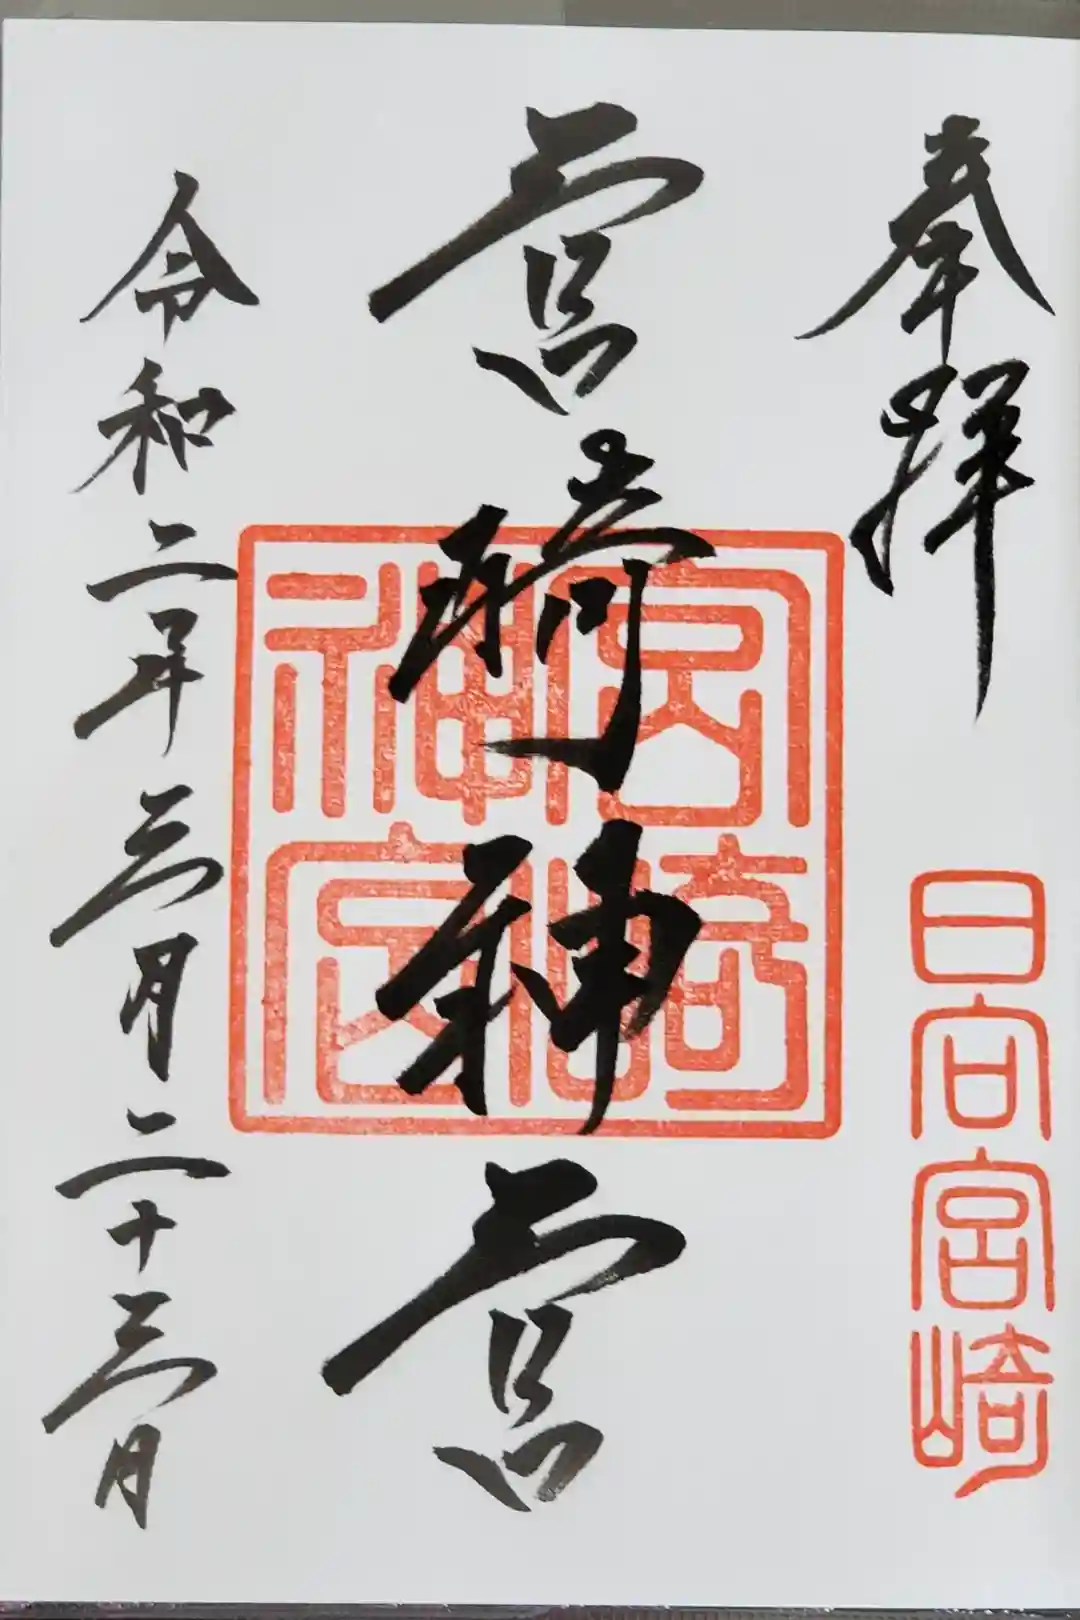 奉拝
日向宮崎
宮崎神宮
宮崎
神宮
令和二年三月二十三日